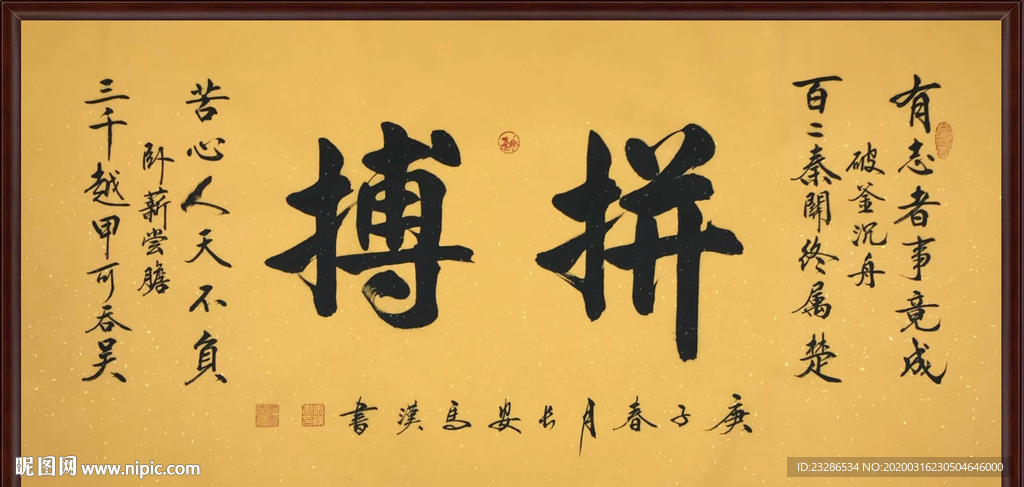 有志者事竟成
破釜沉舟
百二秦關终属楚
拼搏
苦心人天不負
卧薪尝膽
三千越甲可吞吴
庚子春月长安馬漢書
昵图网 www.nipic.com
ID:23286534 NO:20200316230504646000